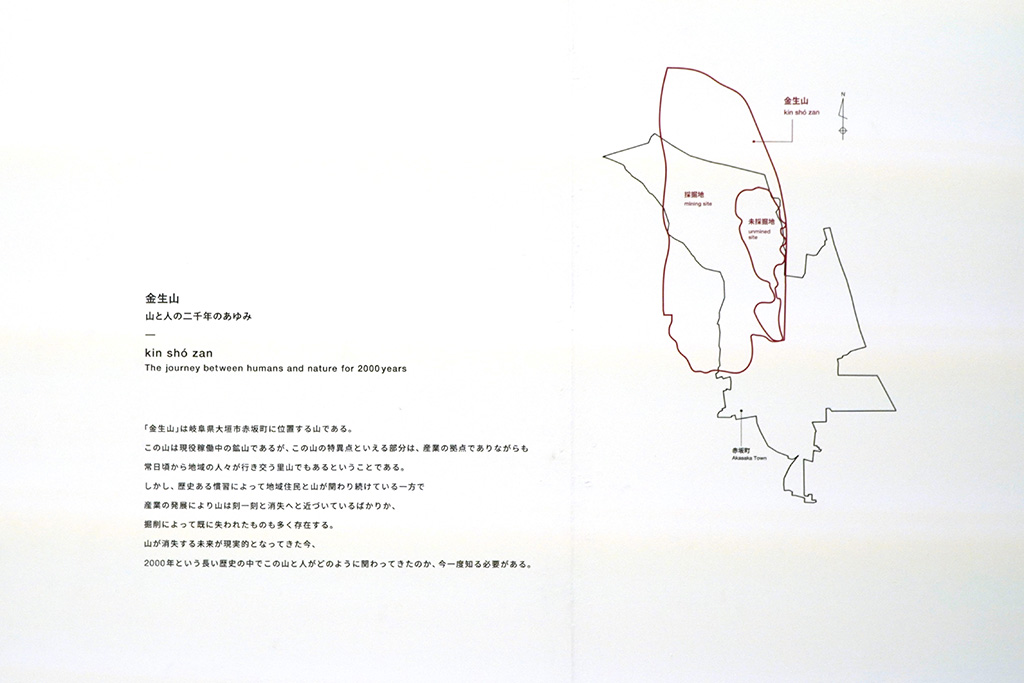 金生山
山と人の二千年のあゆみ
—
kin shó zan
The journey between humans and nature for 2000 years
「金生山」は岐阜県大垣市赤坂町に位置する山である。
この山は現役稼働中の鉱山であるが、この山の特異点といえる部分は、産業の拠点でありながらも
常日頃から地域の人々が行き交う里山でもあるということである。
しかし、歴史ある慣習によって地域住民と山が関わり続けている一方で
産業の発展により山は刻一刻と消失へと近づいているばかりか、
掘削によって既に失われたものも多く存在する。
山が消失する未来が現実的となってきた今、
2000年という長い歴史の中でこの山と人がどのように関わってきたのか、今一度知る必要がある。
金生山
kin shó zan
N
採掘地
mining site
未採掘地
unmined
site
赤坂町
Akasaka Town